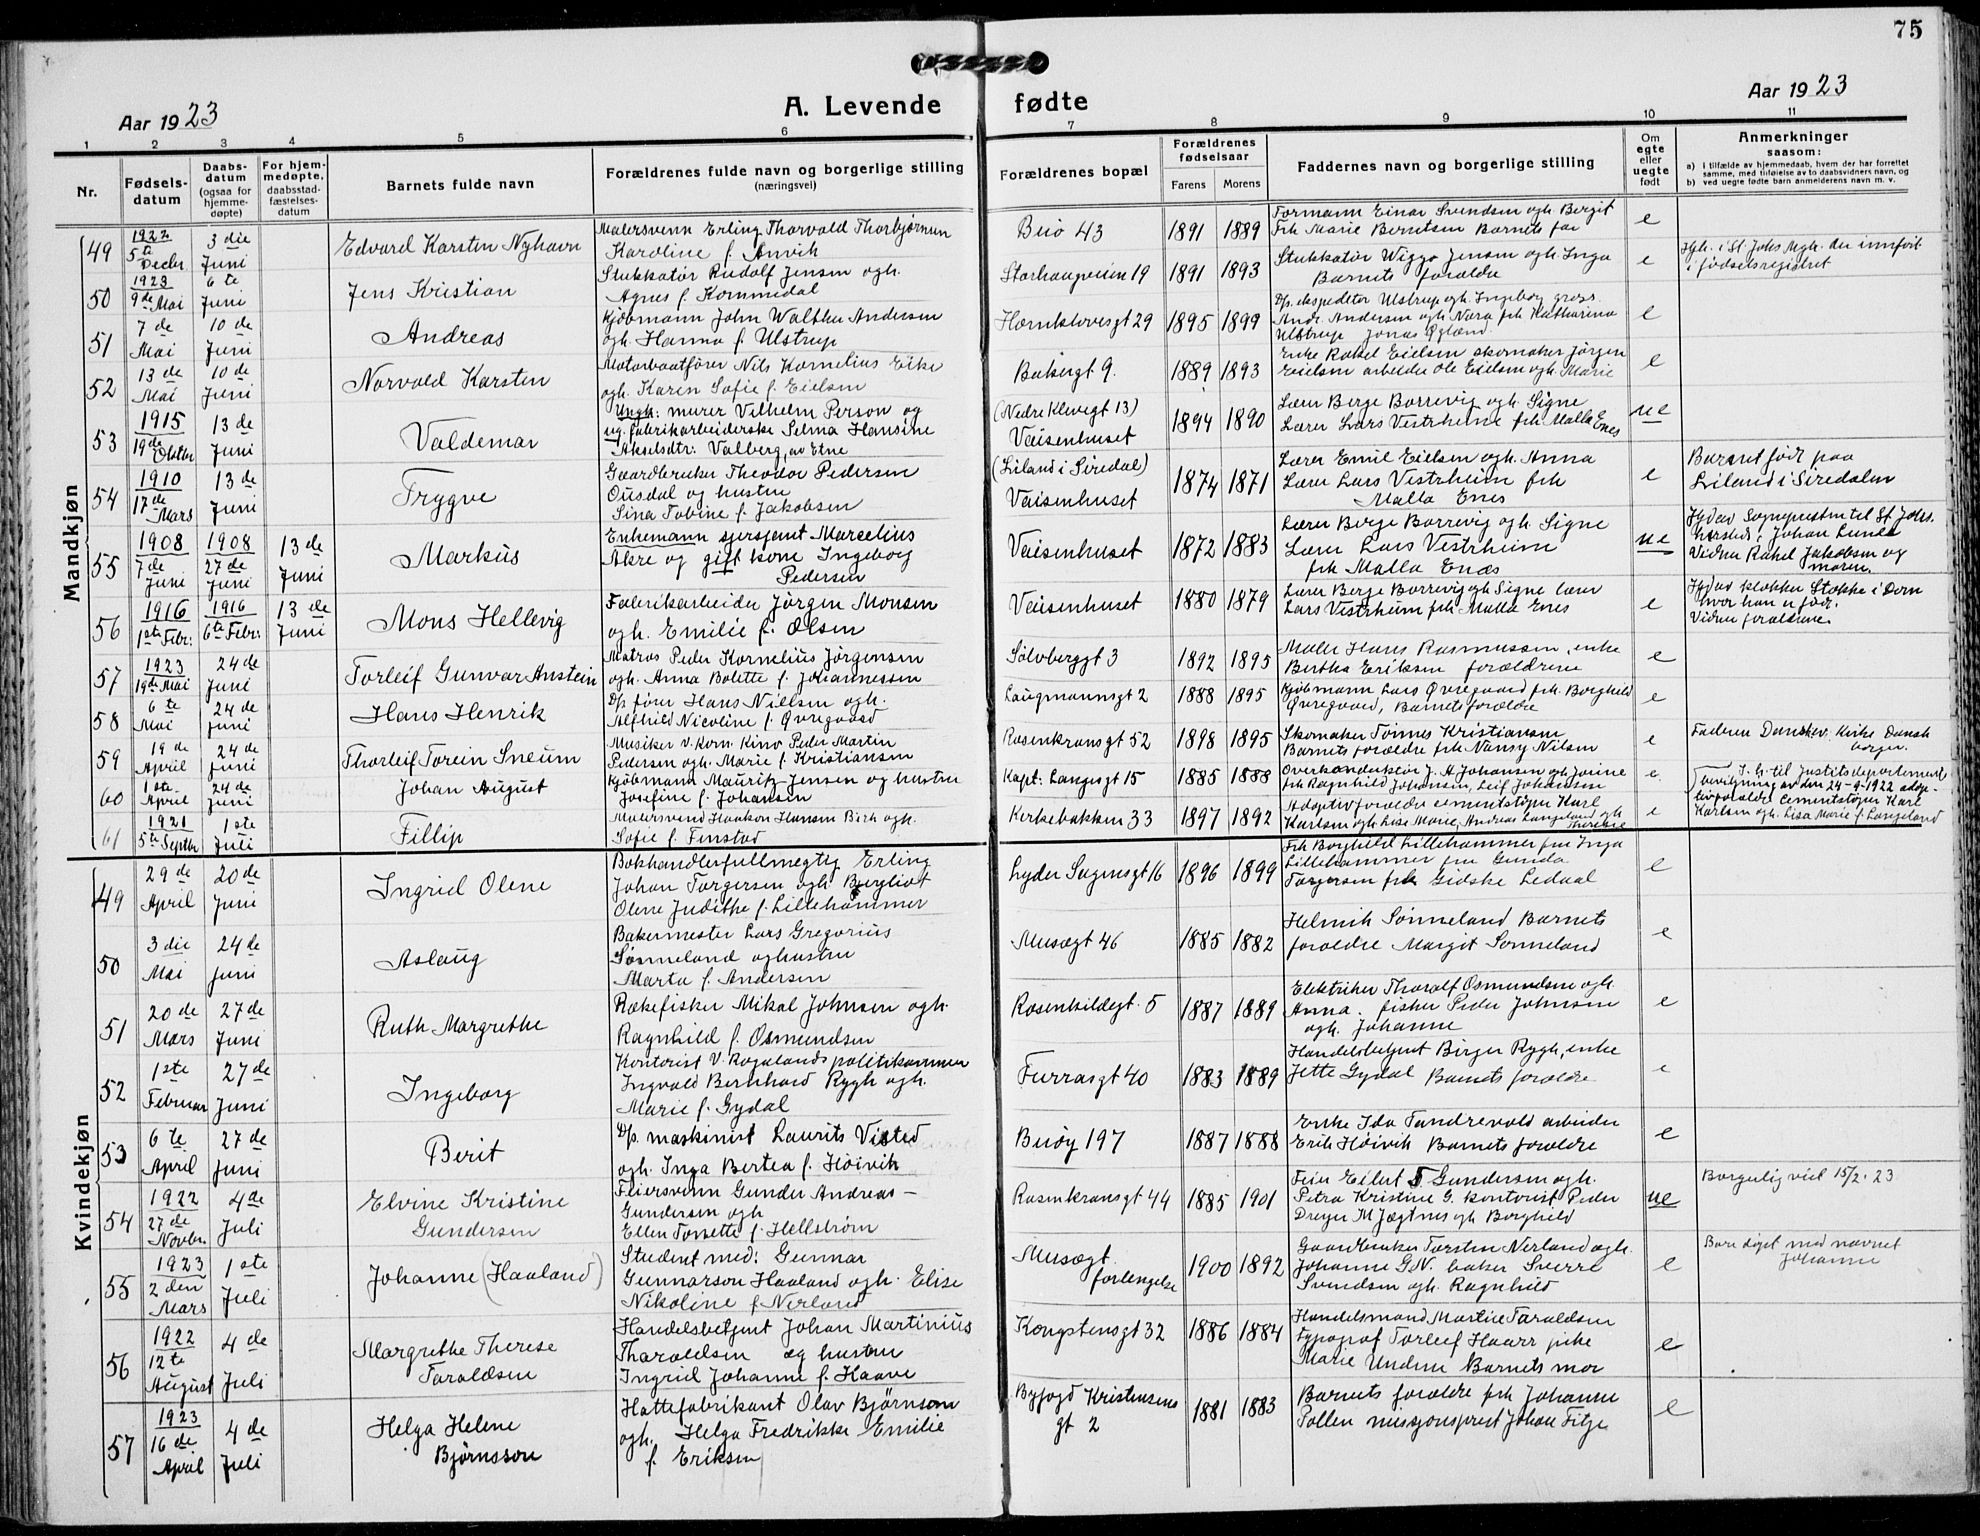 75
Aar 1923
A. Levende fødte
Aar 1923
1 2 3 4 5 6 7 8 9 10 11
Nr.
Fødsels-datum
Daabs-datum (ogsaa for hjemme-døpte)
For hjem-medøpte, daabsstad-fæstelses-datum
Barnets fulde navn
Forældrenes fulde navn og borgerlige stilling (næringsvei)
Forældrenes bopæl
Forældrenes fødselsaar
Farens Morens
Faddernes navn og borgerlige stilling
Om egte eller uegte født
Anmerkninger saasom:
a) I tilfælde av hjemmedaab, hvem der har forrettet samme, med tilføielse av to daabsvidners navn, og
b) ved uegte fødte barn anmelderens navn m. v.
Mandkjøn
49 1922 5te Decbr 3die Juni Edvard Karsten Nyhavn
Malersvenn Erling Thorvald Thorbjørnsen
Karoline f. Anvik
Buø 43 1891 1889
Formann Einar Svendsen ogh. Bergit
Frk Marie Berntsen Barnets far
e
50 1923 9de Mai 6te Juni Jens Kristian
Stukkatør Rudolf Jensen ogh.
Agnes f. Kommedal
Storhaugveien 19 1891 1893
Stukkatør Wiggo Jensen ogh Inga
Barnets forældre
e
Hjh. i St. Johs Mgh. der innført
i fødselsregistret
51 7de Mai 10de Juni Andreas
Kjøbmann John Walther Andersen
ogh. Hanna f. Ulstrup
Hornklovesgt 29 1895 1899
Dp. ekspeditør Ulstrup ogh. Ingeborg gross.
Andr. Andersen ogh Nora frk Katharina
Ulstrup Jonas Øgland.
e
52 13de Mai 10de Juni Norvald Karsten
Motorbaatfører Nils Kornelius Eike
ogh. Karen Sofie f. Eielsen
Bakergt 9. 1889 1893
Enke Rakel Eielsen skomaker Jørgen
Eielsen arbeider Ole Eielsen ogh. Marie
e
53 1915 19de Oktbr 13de Juni Valdemar
Ungk: murer Vilhelm Person og
ug. fabrikarbeiderske Selma Hansine
Akselsdtr: Valberg, av Etne
(Nedre Klevegt 13)
Vaisenhuset 1894 1890
Lærer Berge Borrevig ogh. Signe
Lærer Lars Vestrheim frk Malla Enes
ue
54 1910 17de Mars 13de Juni Trygve
Gaardbruker Theodor Pedersen
Ousdal og hustru
Sina Tobine f. Jakobsen
(Liland i Siredal)
Vaisenhuset 1874 1871
Lærer Emil Eielsen ogh. Anna
Lærer Lars Vestrheim frk
Malla Enes
e
Barnet født paa
Liland i Siredalen
55 1908 7de Juni 1908 27de Juni 13de Juni Markus
Enkemann sjersjant Marcelius
Akre og gift kone Ingeborg
Pedersen
Vaisenhuset 1872 1883
Lærer Berge Borrevig ogh. Signe
Lærer Lars Vestrheim
frk Malla Enæs
ue
Hjd av Sogneprestn til St Johs.
Johan Lunde
Vidner Rakel Jakobsen og
moren.
56 1916 1ste Febr: 1916 6te Febr: 13de Juni Mons Hellevig
Fabrikarbeider Jørgen Monsen
ogh. Emilie f. Olsen
Vaisenhuset 1880 1879
Lærer Berge Borrevig ogh Signe lærer
Lars Vestrheim frk Malla Enes
e
Hjd av klokker Stokke i Dern
hvor han er født.
Vidner forældrene.
57 1923 19de Mai 24de Juni Torleif Gunvar Anstein
Matros Peder Kornelius Jørgensen
ogh. Anna Bolette f. Johannessen
Sølvberggt 3 1892 1895
Maler Hans Rasmussen, enke
Bertha Eriksen forældrene
e
58 6te Mai 24de Juni Hans Henrik
Dp fører Hans Nielsen ogh.
Alfhild Nicoline f. Øvregaard
Laugmannsgt 2 1888 1895
Kjøbmann Lars Øvregaard frk. Borghild
Øvregaard, Barnets forældre
e
59 19de April 24de Juni Thorleif Torein Sneum
Musiker v. Kom. Kino Peder Martin
Pedersen ogh. Marie f. Kristiansen
Rosenkransgt 52 1898 1895
Skomaker Tønnes Kristiansen
Barnets forældre frk Nansy Nilsen
e
Faderen Danskev. Kirke Dansk
borger.
60 1ste April 24de Juni Johan August
Kjøbmann Mauritz Jensen og hustru
Josefine f. Johansen
Kapt: Langesgt 15 1885 1888
Overkonduktør J. H. Johansen ogh Jorine
frk Ragnhild Johansen, Leif Johansen
e
61 1921 5te Septbr 1ste Juli Fillip
Malersvend Haakon Hansen Birk ogh.
Sofie f. Finstad
Kirkebakken 33 1897 1892
Adoptivforældre cementstøper Karl
Karlsen ogh. Lisa Marie, Andreas Langeland ogh
Therese
e
I. h. til Justitsdepartements
bevilgning av den 24-9-1922 adop-
tivforældre cementstøper Karl
Karlsen ogh. Lisa Marie f. Langeland
Kvindekjøn
49 29de April 20de Juni Ingrid Olene
Bokhandlerfullmegtig Erling
Johan Torgersen ogh. Bergliot
Olene Judithe f. Lillehammer
Lyder Sagensgt 16 1896 1899
Frk Borghild Lillehammer fru Inga
Lillehammer fru Gunda
Torgersen frk Gidske Ledaal
e
50 3die Mai 24de Juni Aslaug
Bakermester Lars Gregorius
Sønneland og hustru
Marta f. Andersen
Musegt 46 1885 1882
Helmik Sønneland Barnets
forældre Margit Sønneland
e
51 20de Mars 27de Juni Ruth Margrethe
Rækefisker Mikal Johnsen ogh.
Ragnhild f. Osmundsen
Rosenkildegt. 5 1887 1889
Elektriker Thoralf Osmundsen ogh.
Anna. fisker Peder Johnsen
ogh. Johanne
e
52 1ste Februar 27de Juni Ingeborg
Kontorist v. Rogalands politikammer
Ingvald Bernhard Rygh ogh.
Marie f. Gydal
Furrasgt 40 1883 1889
Handelsbetjent Birger Rygh, enke
Jette Gydal Barnets forældre
e
53 6te April 27de Juni Berit
Dp. maskinist Laurits Visted
ogh. Inga Bertea f. Høivik
Buøy 197 1887 1888
Enke Ida Tandrevold arbeider
Erik Høivik Barnets forældre
e
54 1922 27de Novbr. 4de Juli Elvine Kristine
Gundersen
Feiersvenn Gunder Andreas
Gundersen ogh
Ellen Tomette f. Hellstrøm
Rosenkransgt 44 1885 1901
Feier Eilert T Gundersen ogh.
Petra Kristine G. kontorist Peder
Dreyer M Jægtnes ogh Borghild
ue
Borgerlig viel 15/2. 23
55 1923 2den Mars 1ste Juli Johanne (Haaland)
Student med: Gunnar
Gunnarson Haaland ogh. Elise
Nikoline f Nerland
Musegt.
forlengelse 1900 1892
Gaardbruker Torsten Nerland ogh.
Johanne G.N. baker Sverre
Svendsen ogh. Ragnhild
e
Bare døpt med navnet
Johanne
56 1922 12te August 4de Juli Margrethe Therese
Taraldsen
Handelsbetjent Johan Martinius
Tharaldsen og hustru
Ingrid Johanne f. Haave
Kongstensgt 32 1886 1884
Handelsmand Martin Taraldsen
typograf Torleif Haarr pike
Marie Undem Barnets mor
e
57 1923 16de April 4de Juli Helga Helene
Bjørnsson
Hattefabrikant Olav Bjørnson
ogh. Helga Fredrikke Emilie
f. Eriksen
Byfogd Kristensens
gt 2 1881 1883
Barnets forældre frk Johanne
Pollen missjonsprest Johan Fitje
e